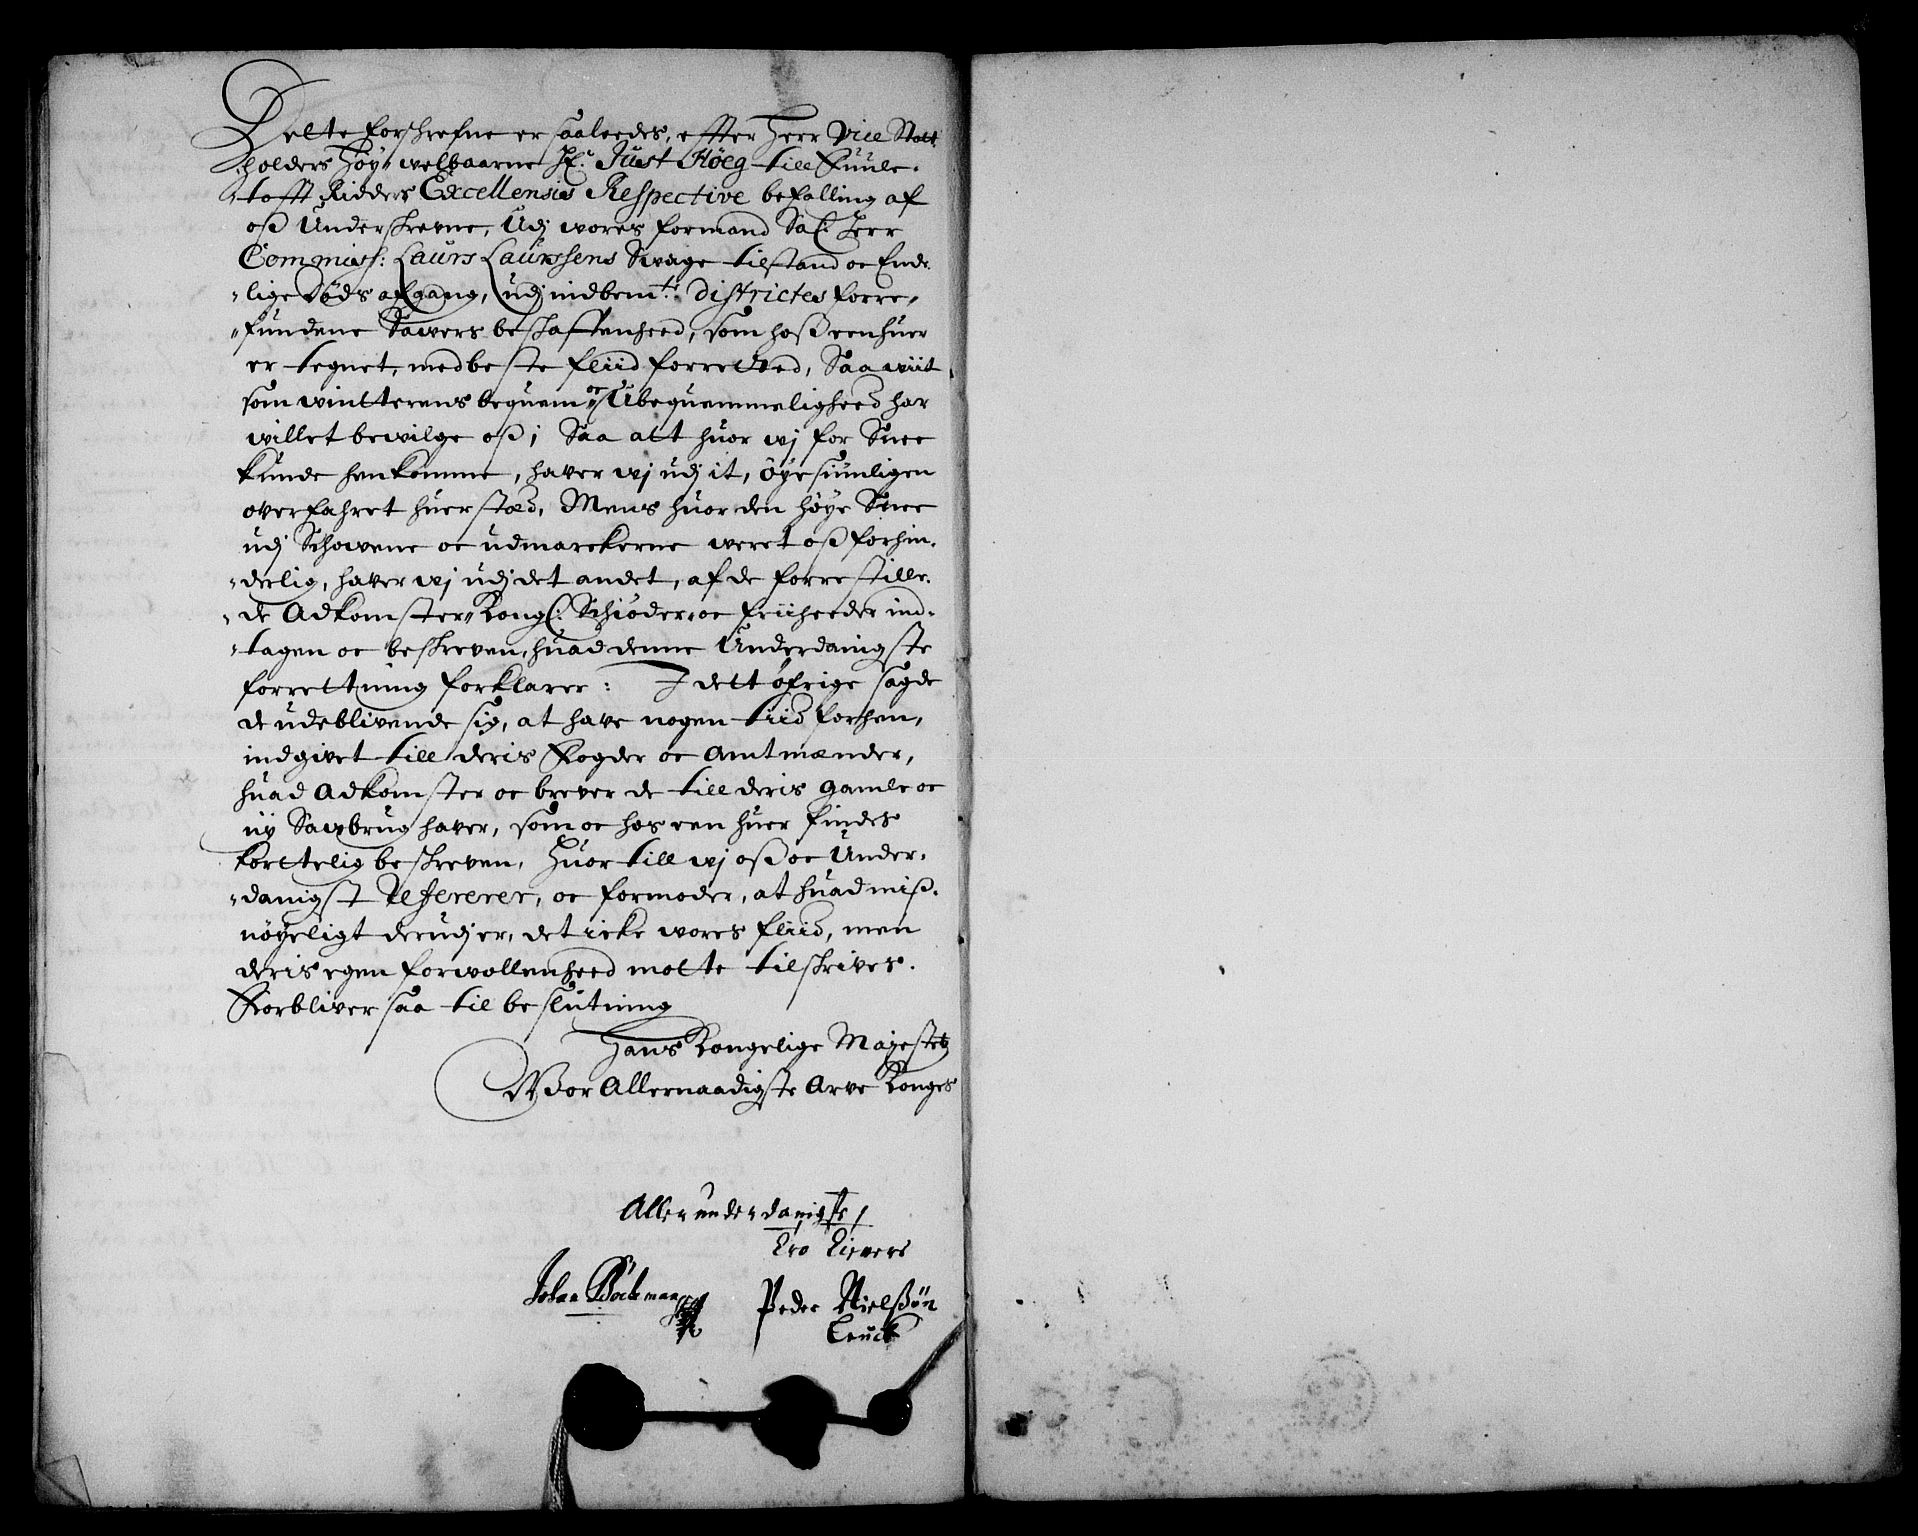 Dette forschrefne er saaleedes, effter Herr Vice Statt
holders Höy-welbaarne Hr. Just Höeg till Fuule-
-tofft Ridders Excellensis Respective befalling af
oß Underschrevne, Udj wores formand Sal: Herr
Commiss: Laurs Laurssens Swage tilstand oc Ende
-lige Döds afgang, udj indbemte: Districtes forre-
-fundene Sawers beskaffenheed, som hoß een huer
er tegnet, med beste fliid forretted, Saa wiit
som wintterens bequem oc Ubequemmeligheed har
willet bewilge oß; Saa att huor wj for Snee
kunde henkomme, haver wj udj it, öyesiunligen
overfahret huer stæd, Mens huor den höye Snee
udj Schowene oc udmarckerne weret oß forhin-
-derlig, haver wj udj det andet, af de forrestille-
-de Adkomster, Kongl: Schiöder, oc friiheeder ind-
-tagen oc beskreven, huad denne Underdanigste
forrettning forklarer: I dett öfrige sagde
de udeblivende sig, at have nogen tiid forhen,
indgivet till deris Fogder oc Amtmænder,
huad Adkomster oc brever de till deris gamle oc
ny Sawbrug haver, som oc hos een huer findes
korttelig beskreven, Huor till wj oß oc Under-
-danigst Refererer, oc formoder, at huad miß-
nöyeligt derudj er, det icke wores fliid, men
deris egen forwollenheed motte tilskrives.
Forbliver saa til beslutning
Hans Kongelige Majestetz
Wor Allernaadigste Arve Konges
Allerunderdanigste
Iver Sievers
Johan Böckman
Peder Nielßön
Leuch